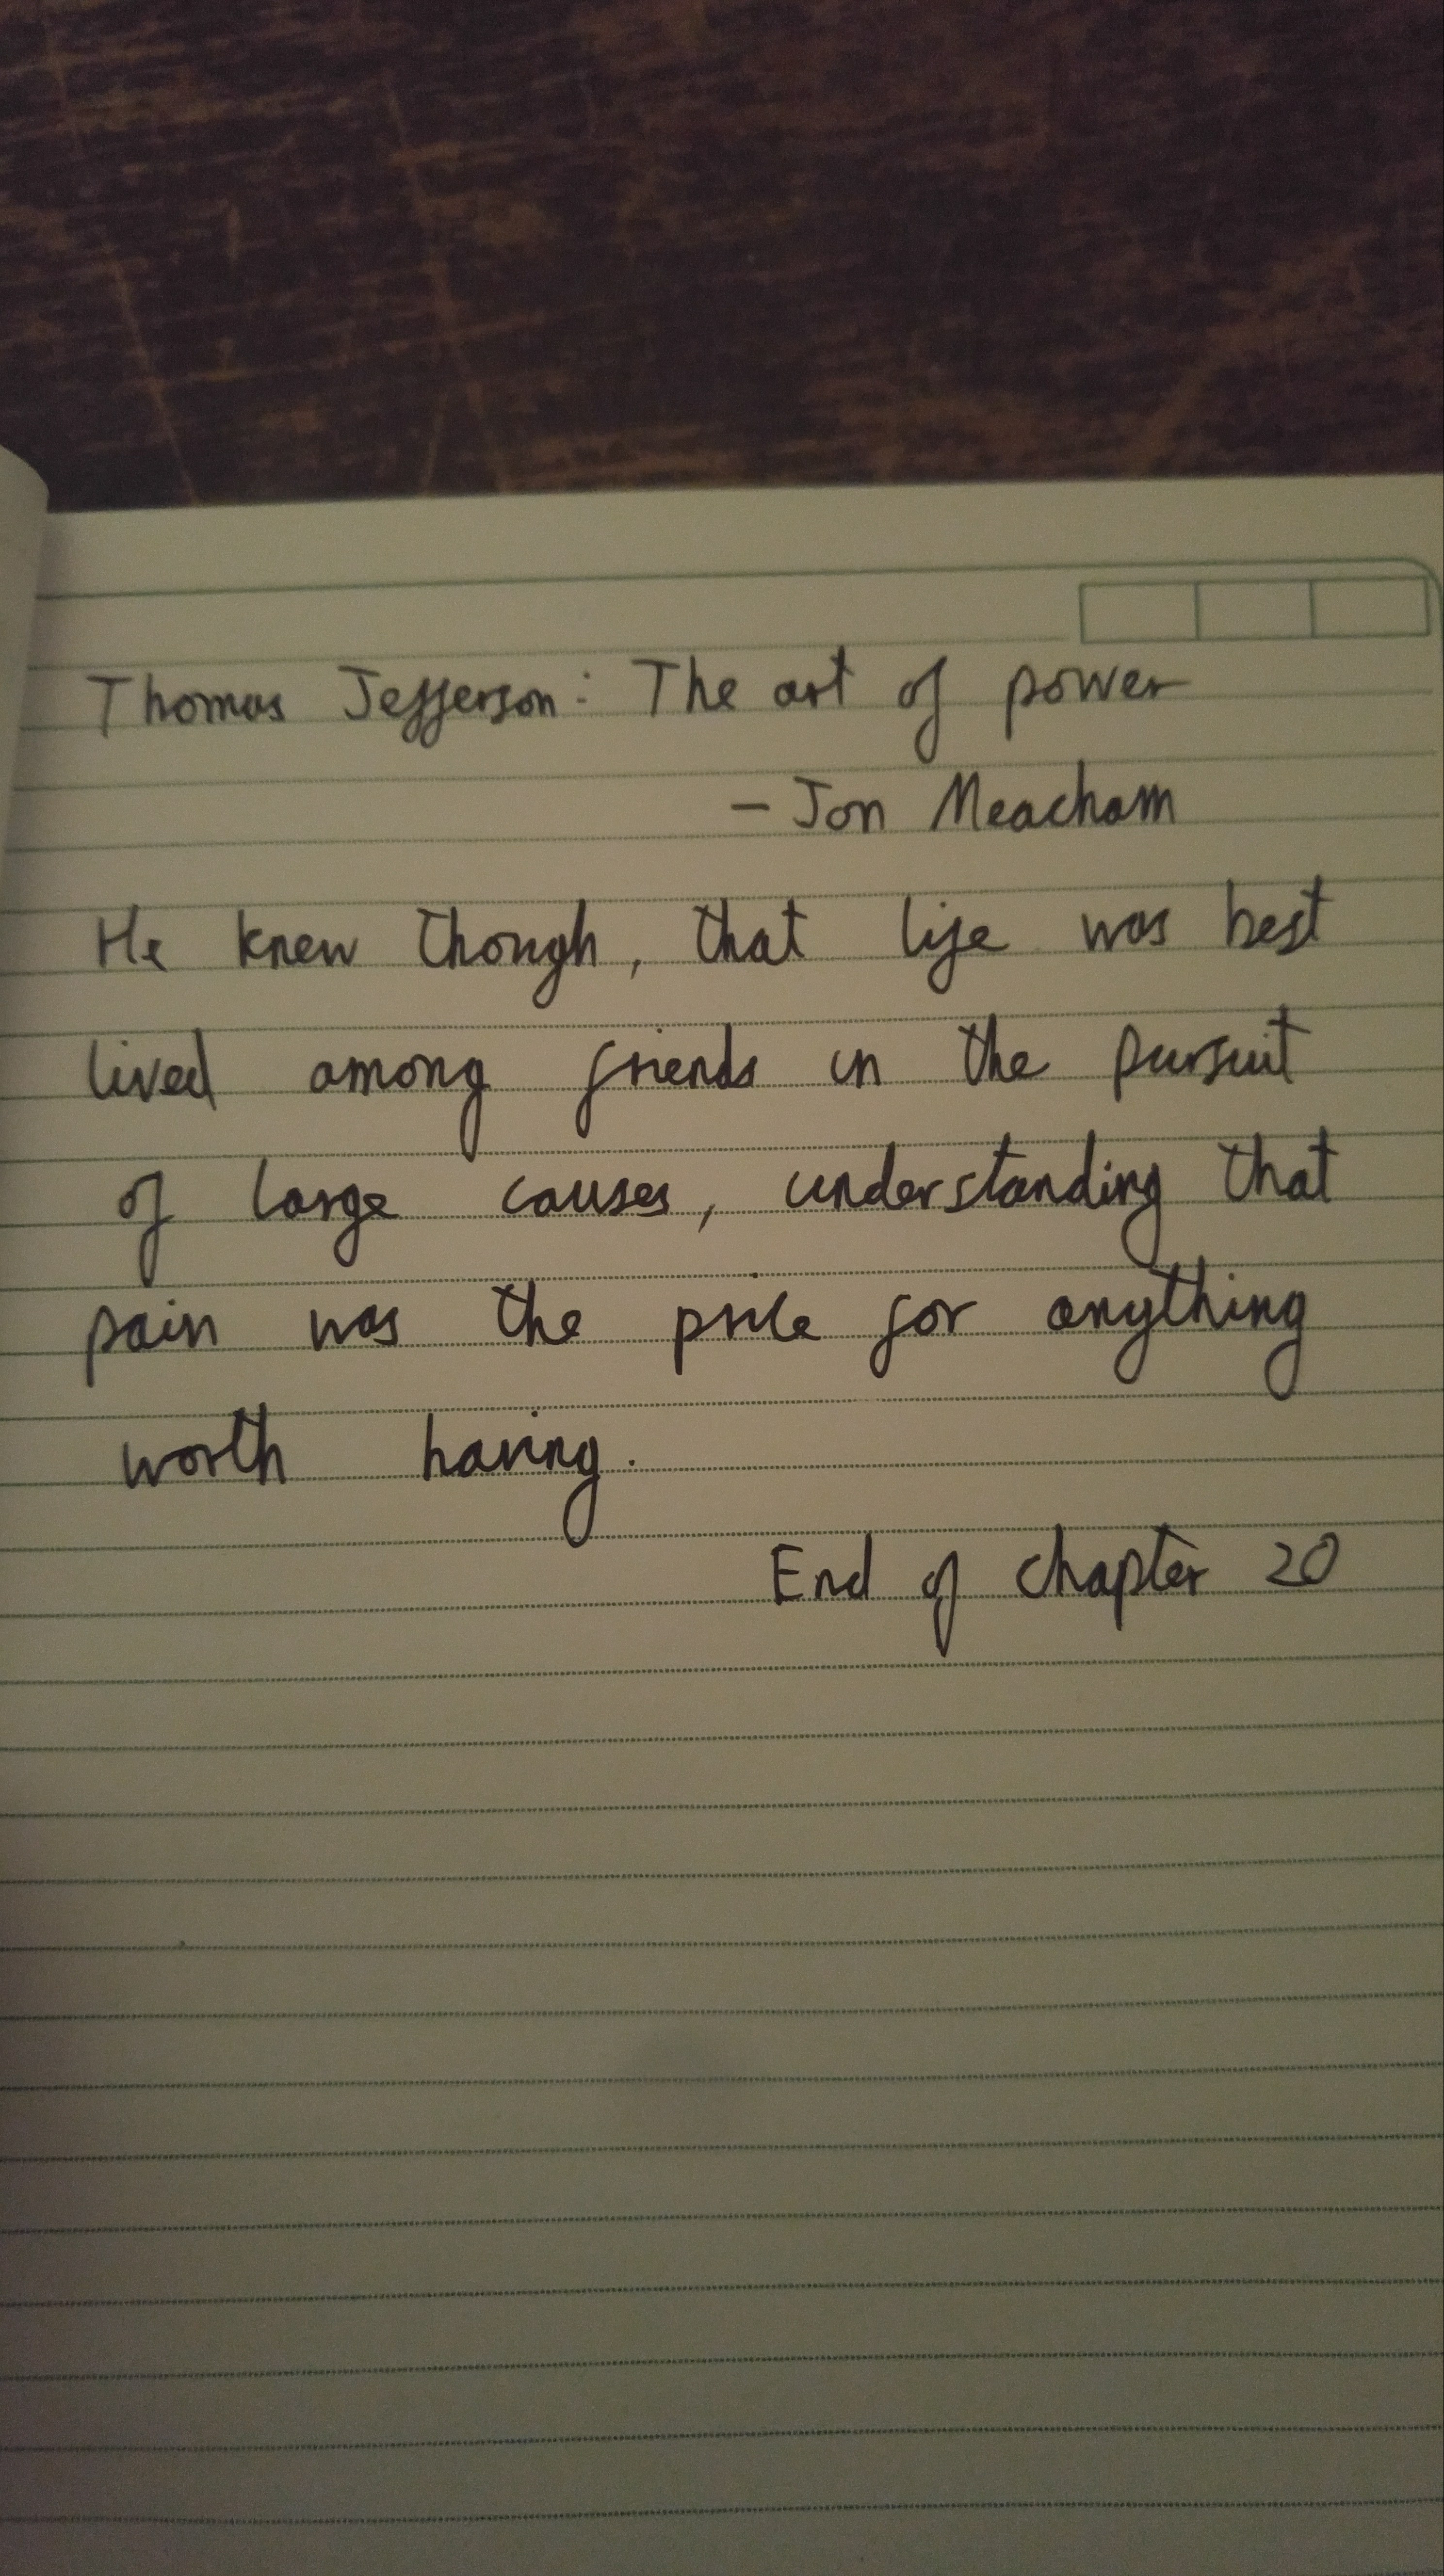 Thomas Jefferson: The art of power
- Jon Meacham
He knew though, that life was best
lived among friends in the pursuit
of large causes, understanding that
pain was the price for anything
worth having.
End of chapter 20